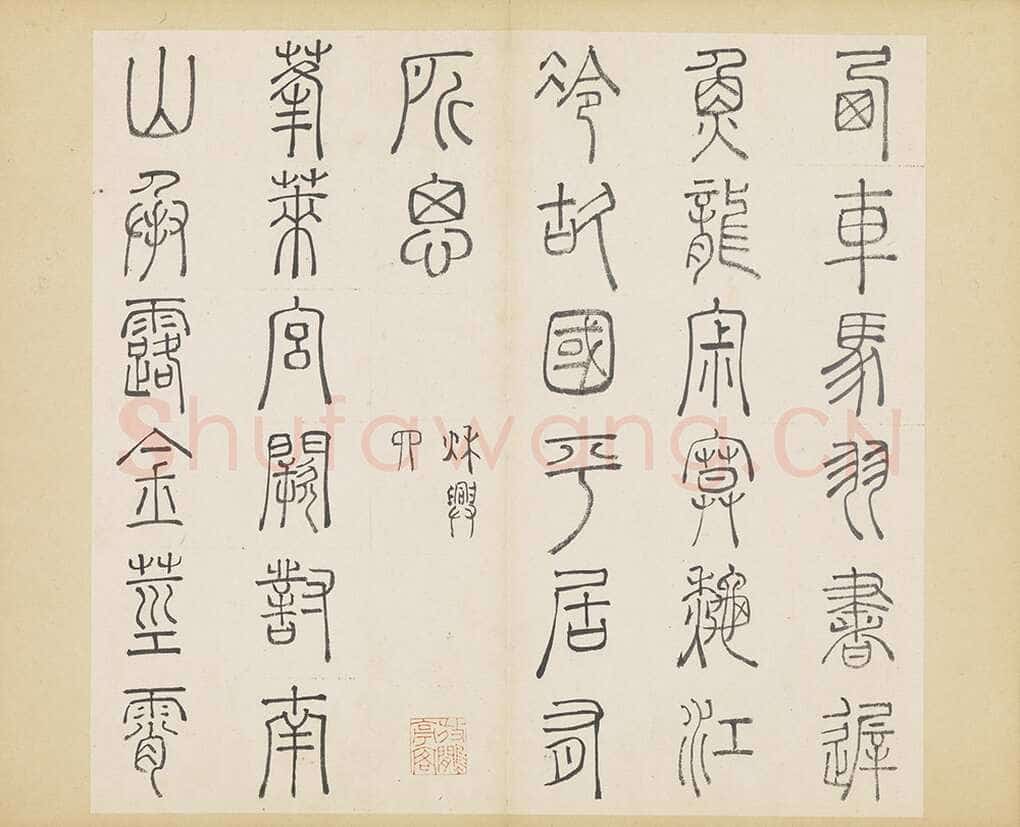 西車馬羽書遲
魚龍寂寞秋江
冷故國平居有
所思
秋興
四
蓬萊宮闕對南
山承露金莖霄
Shufawang.CN